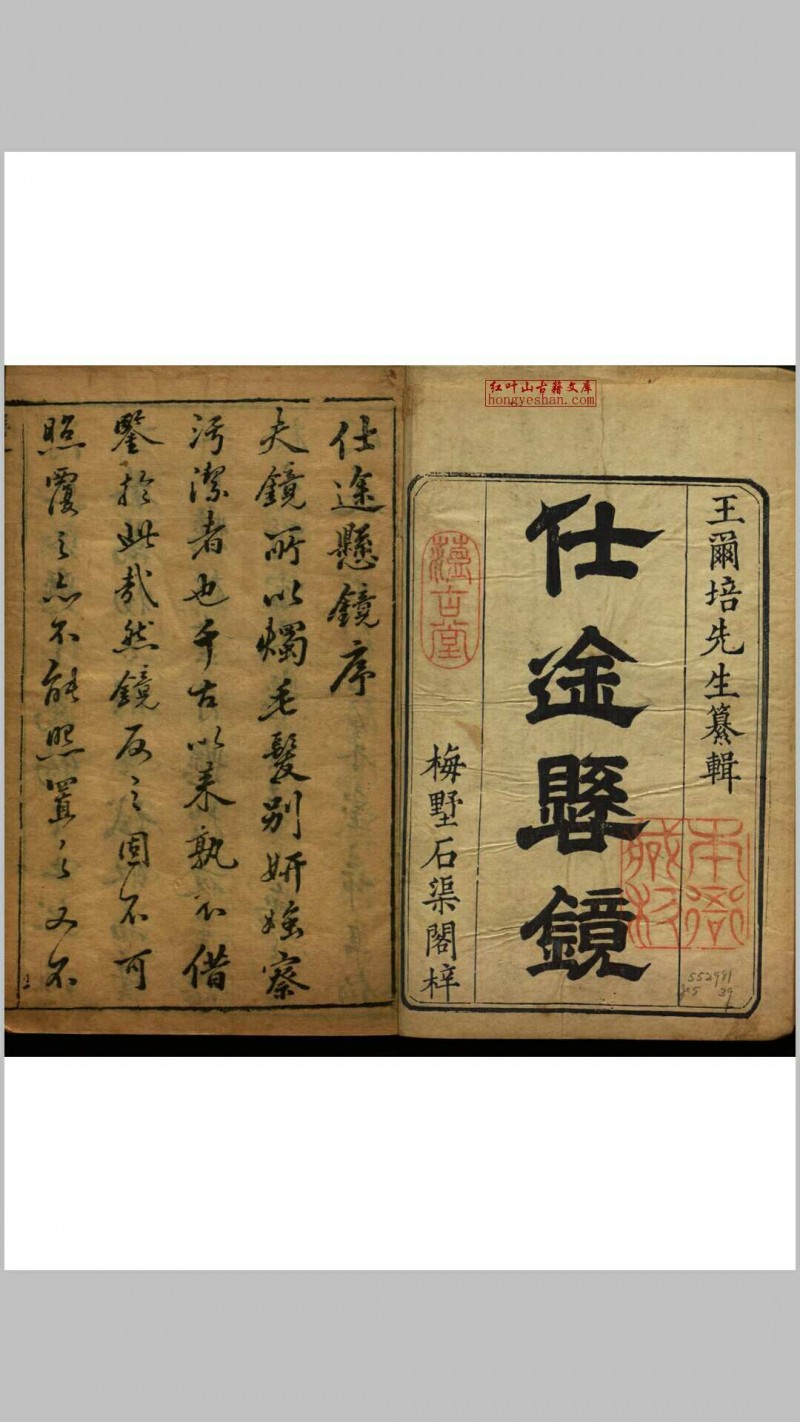 红叶山古籍文库
hongyeshan.com
王爾培先生纂輯
仕途懸鏡
梅墅石渠閣梓
本衙藏板
552981
仕途懸鏡序
夫鏡所以燭毛髮別妍媸察
污潔者也千古以來孰不借
鑒於此哉然鏡反之固不可
照覆之亦不能照置之又不